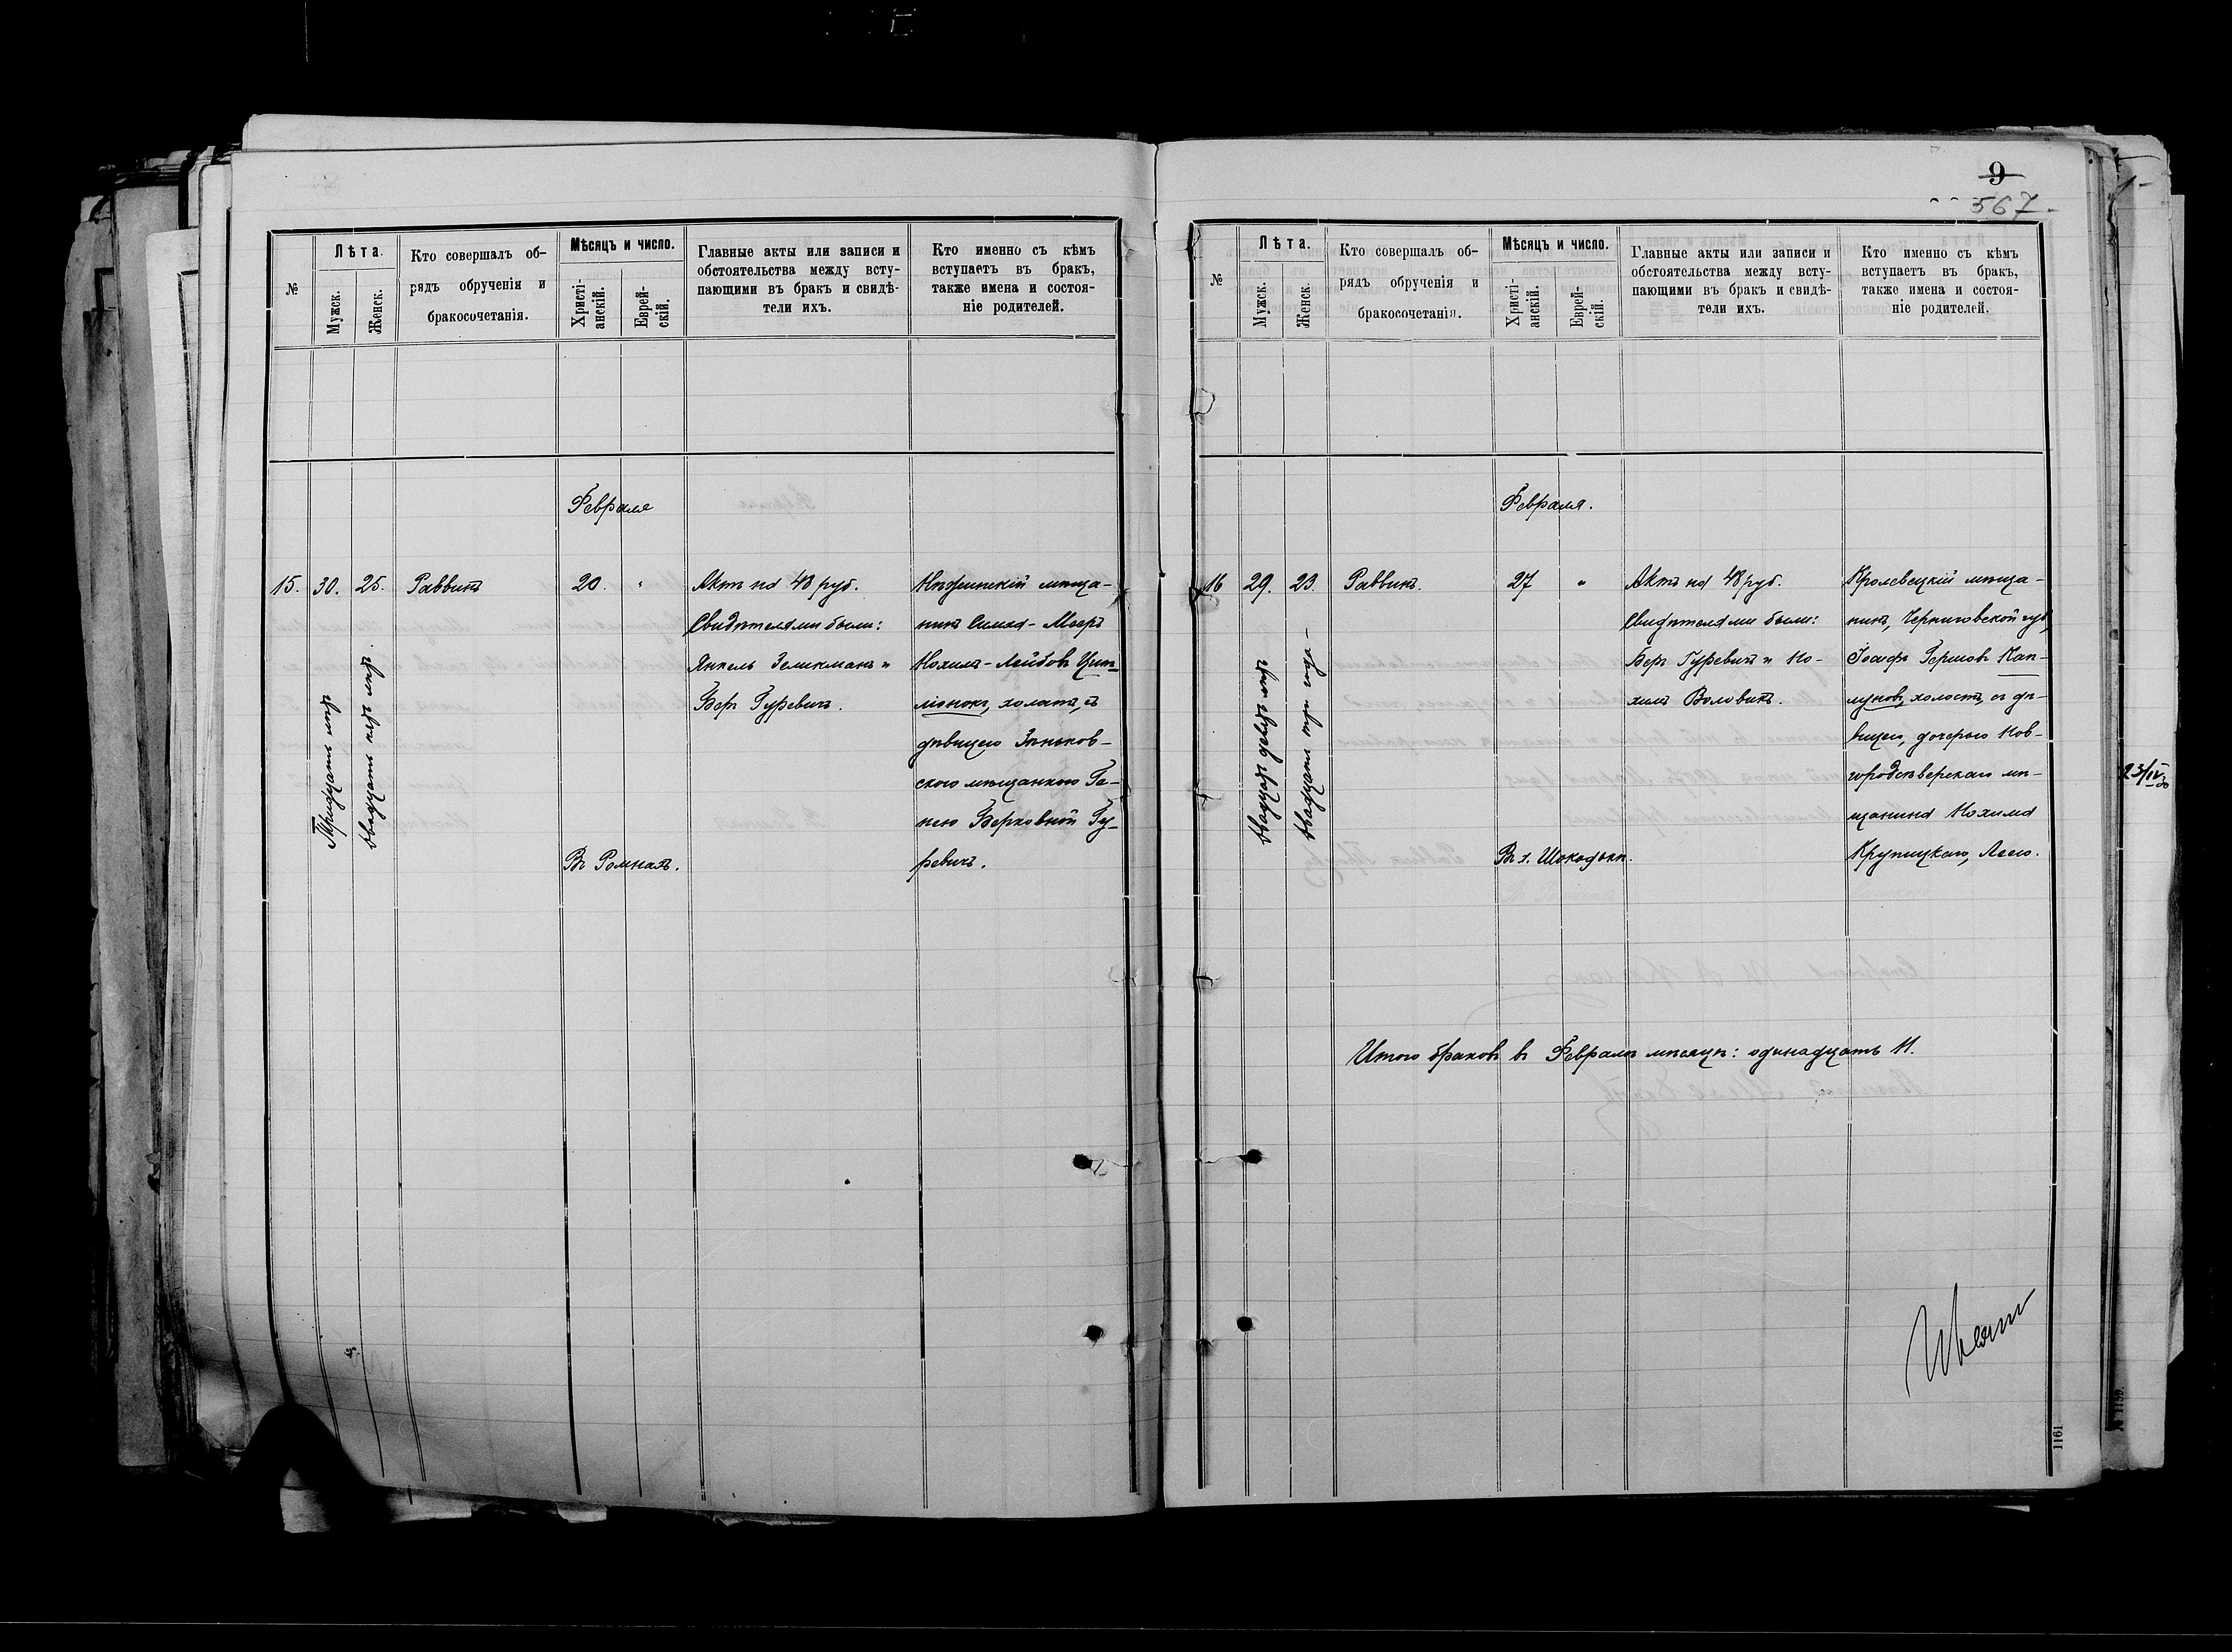 №
Лѣта.
Мужск.
Женск.
Кто совершалъ об-
рядъ обрученія и
бракосочетанія.
Мѣсяцъ и число.
Христі-
анскій.
Еврей-
скій.
Главные акты или записи и
обстоятельства между всту-
пающими въ бракъ и свидѣ-
тели ихъ.
Кто именно съ кѣмъ
вступаетъ въ бракъ,
также имена и состоя-
ніе родителей.
Февраля
15.
30.
Тридцать лѣтъ
25.
двадцать пять лѣтъ.
Раввинъ
20.
"
Въ Ромнахъ.
Актъ на 48 руб.
Свидѣтелями были:
Янкель Зеликманъ и
Беръ Гуревичъ.
Нѣжинскій мѣща-
нинъ Симха-Мееръ
Нохимъ-Лейбовъ
холостъ, съ
дѣвицею Зѣньков-
скою мѣщанкою Ге-
нею Берковной Гу-
ревичъ.
9
567.
№
Лѣта.
Мужск.
Женск.
Кто совершалъ об-
рядъ обрученія и
бракосочетанія.
Мѣсяцъ и число.
Христі-
анскій.
Еврей-
скій.
Главные акты или записи и
обстоятельства между всту-
пающими въ бракъ и свидѣ-
тели ихъ.
Кто именно съ кѣмъ
вступаетъ въ бракъ,
также имена и состоя-
ніе родителей.
Февраля.
16
29.
двадцать девять
23.
двадцать три года-
Раввинъ.
27
"
Актъ на 48 руб.
Свидѣтелями были:
Беръ Гуревичъ и Но-
химъ Воловикъ.
Кролевецкій мѣща-
нинъ, Черниговской губ,
Іосифъ Гершовъ Кап-
луновъ, холостъ, съ дѣ-
вицею, дочерью Нов-
городсѣверскаго мѣ-
щанина Нохима
Крупицкаго, Леею.
Итого браковъ въ Февралѣ мѣсяцѣ: одинадцать 11.
1161
23/IV
№ 1159.